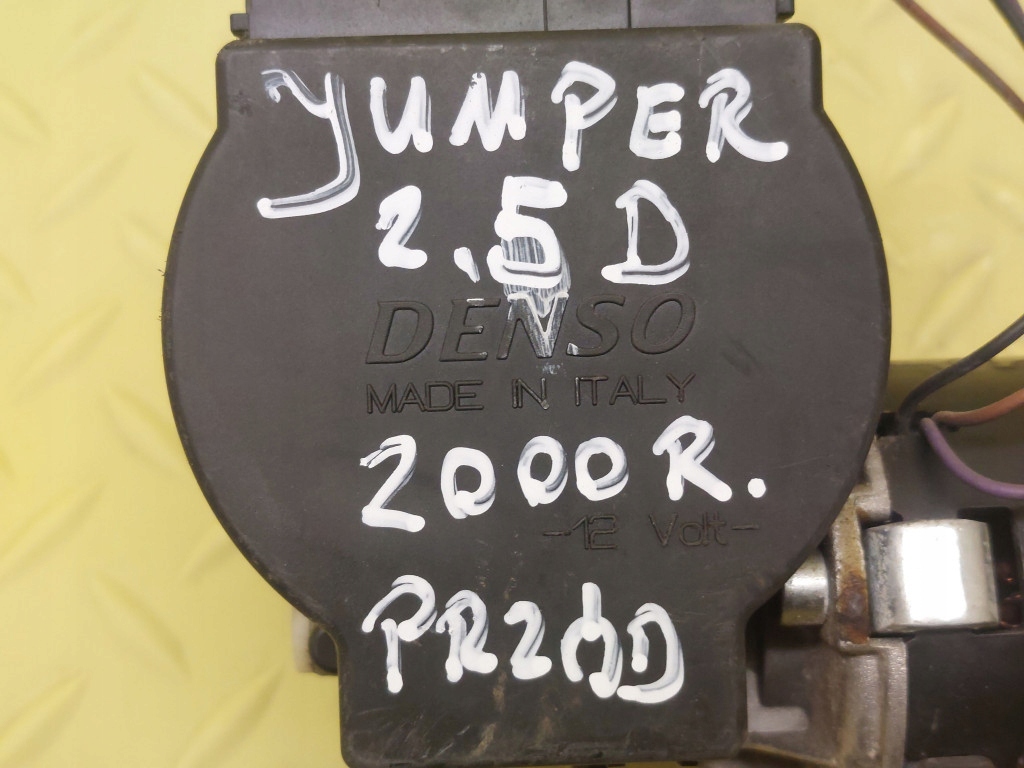 JUMPER
2.5 D
DENSO
MADE IN ITALY
2000 R.
-12 Volt-
PRZÓD